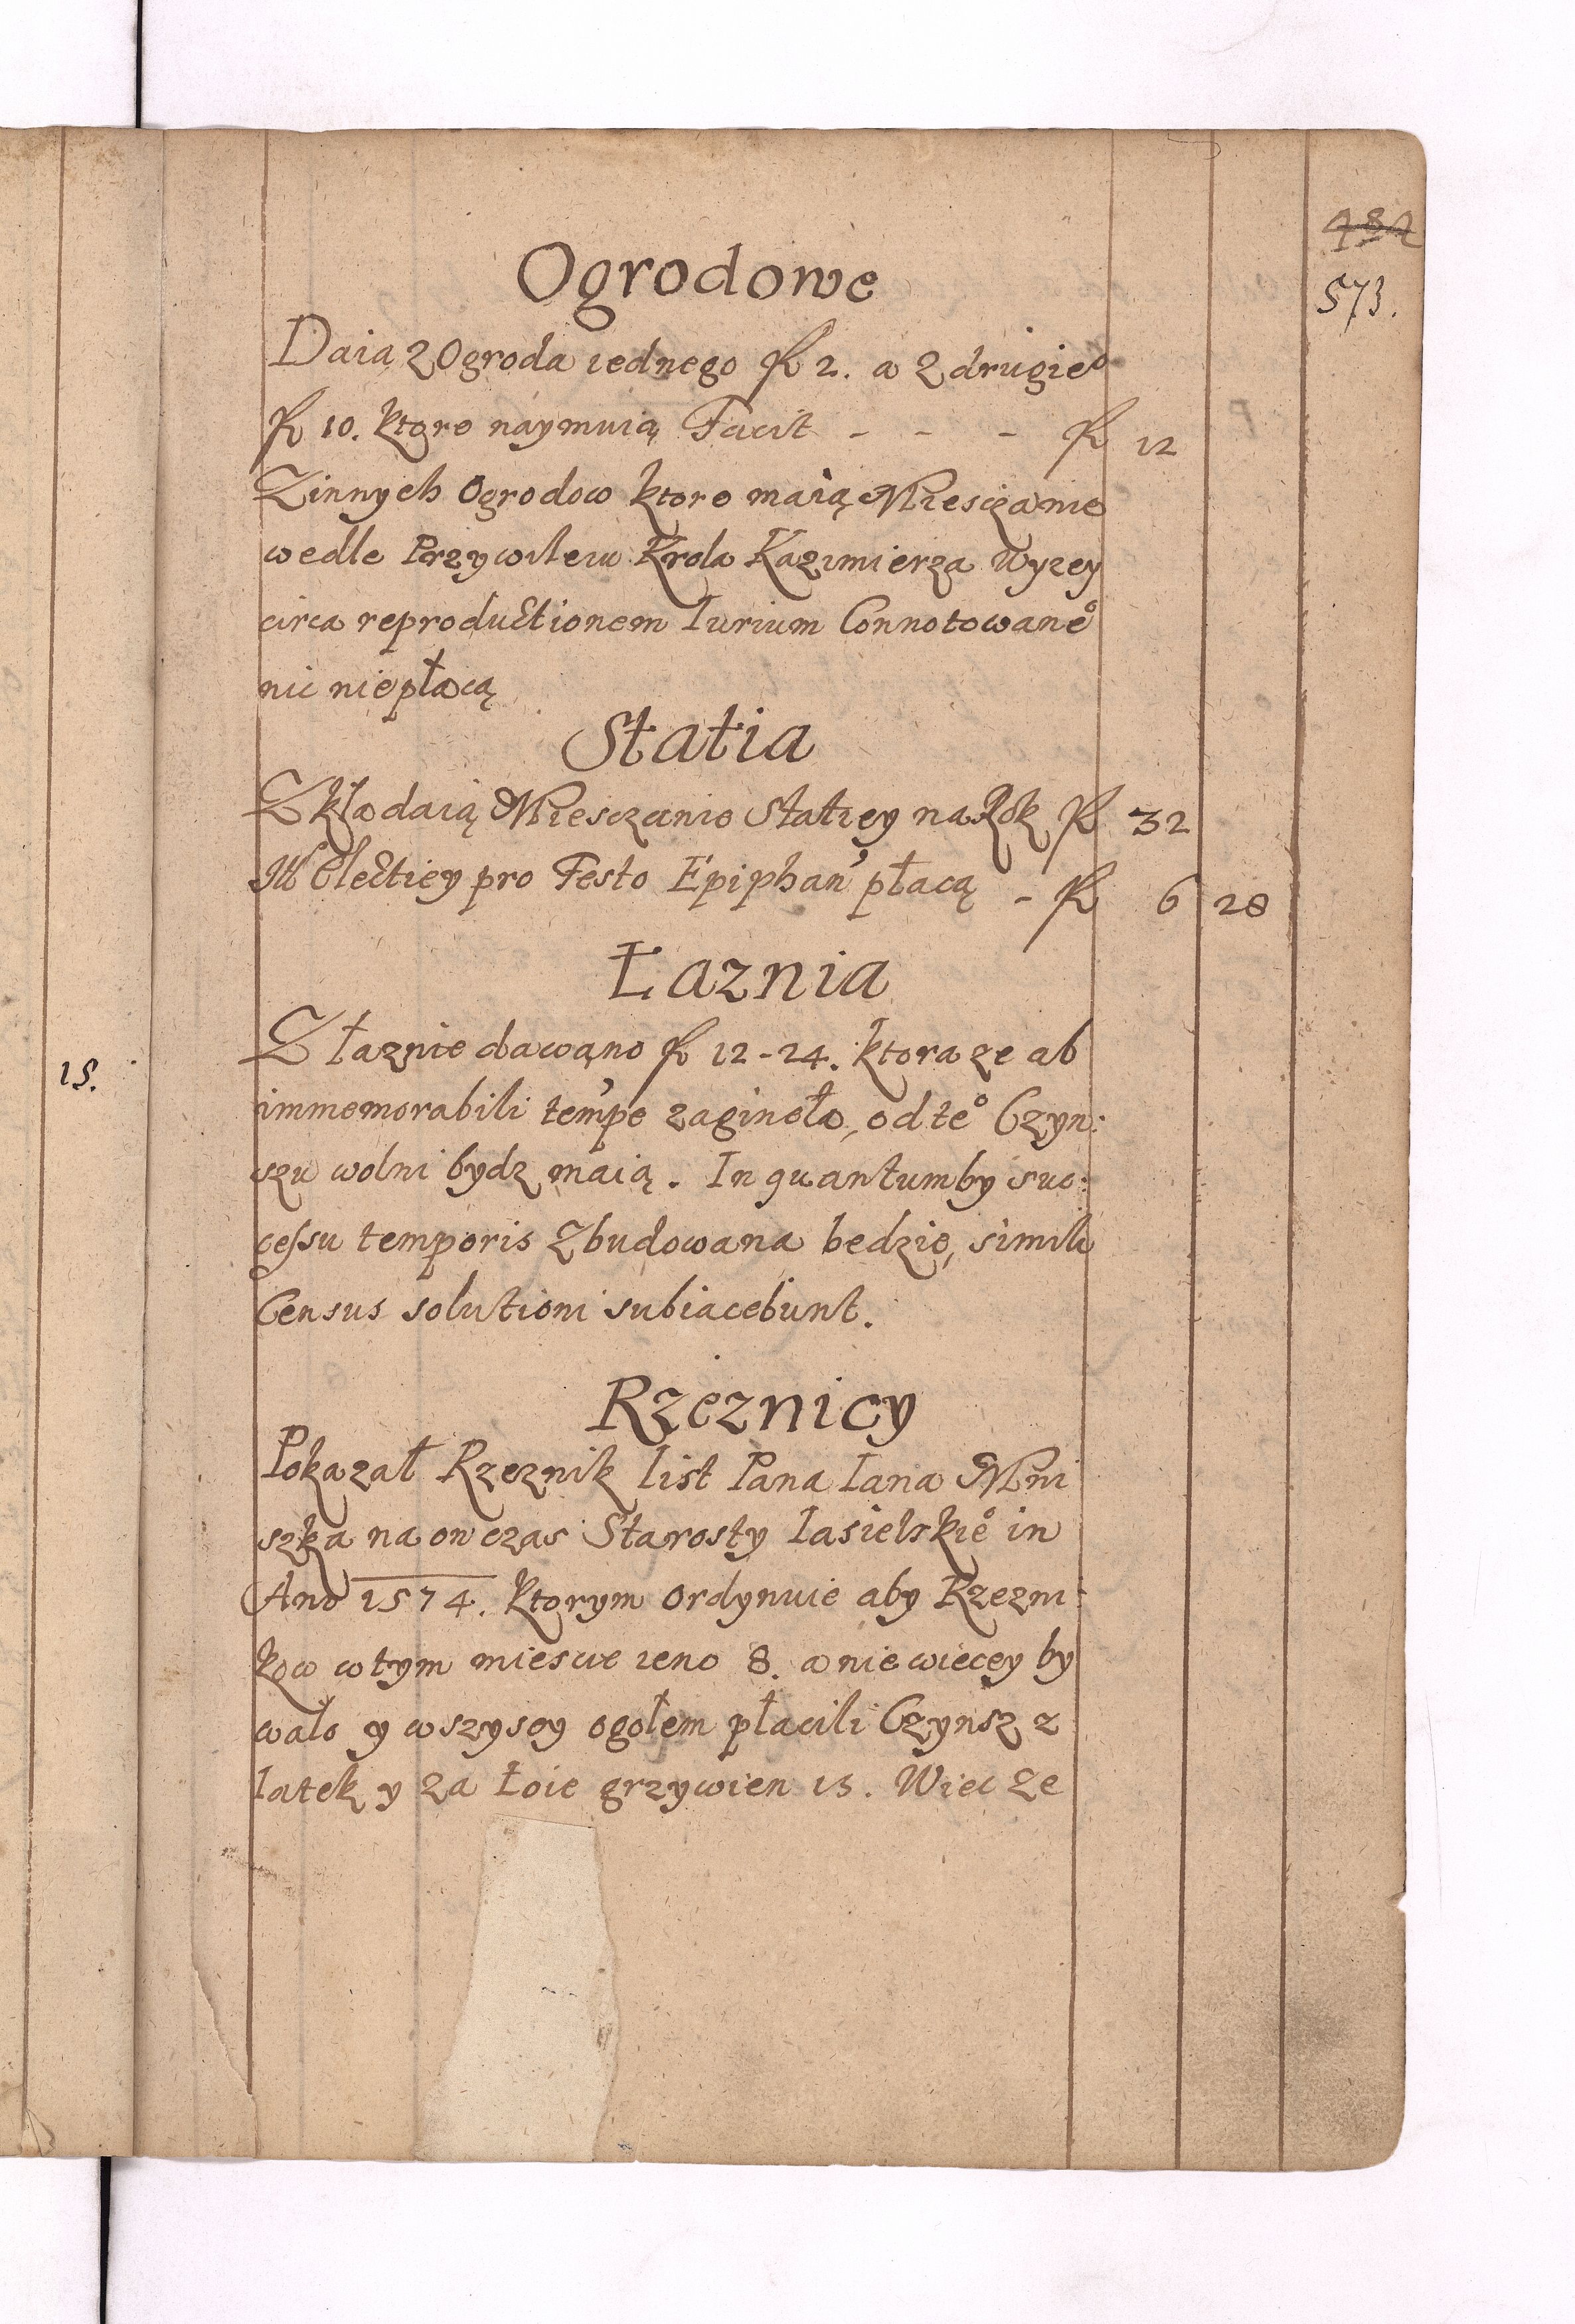 482
573.
Ogrodowe
Daią z Ogroda iednego fl 2. a z drugie°
fl 10. ktore naymuią Facit - - - fl 12
Z innych Ogrodow ktore maią Miesczanie
wedle Przywileiu Krola Kazimierza Wyzey
circa reproductionem Iurium Connotowane°
nic niepłacą
Statia
Zkładaią Miesczanie Statiey na Rok fl 32
Collectiey pro Festo Epiphan' płacą - fl 6 28
Łaznia
Z łaznie dawano fl 12-24. ktora ze ab
15.
immemorabili temp'e zagineła, od te° Czyn:
szu wolni bydz maią. In quantumby suc:
cessu temporis Zbudowana bedzie, simili
Census solutioni subiacebunt.
Rzeznicy
Pokazał Rzeznik list Pana Iana Mni
szka na on czas Starosty Iasielskie° in
Ano 1574. ktorym ordynuie aby Rzezni:
kow w tym miescie ieno 8. a nie wiecey by
wało y wszyscy ogołem płacili Czynsz z
Iatek y za Łoie grzywien 15. Wiec ze